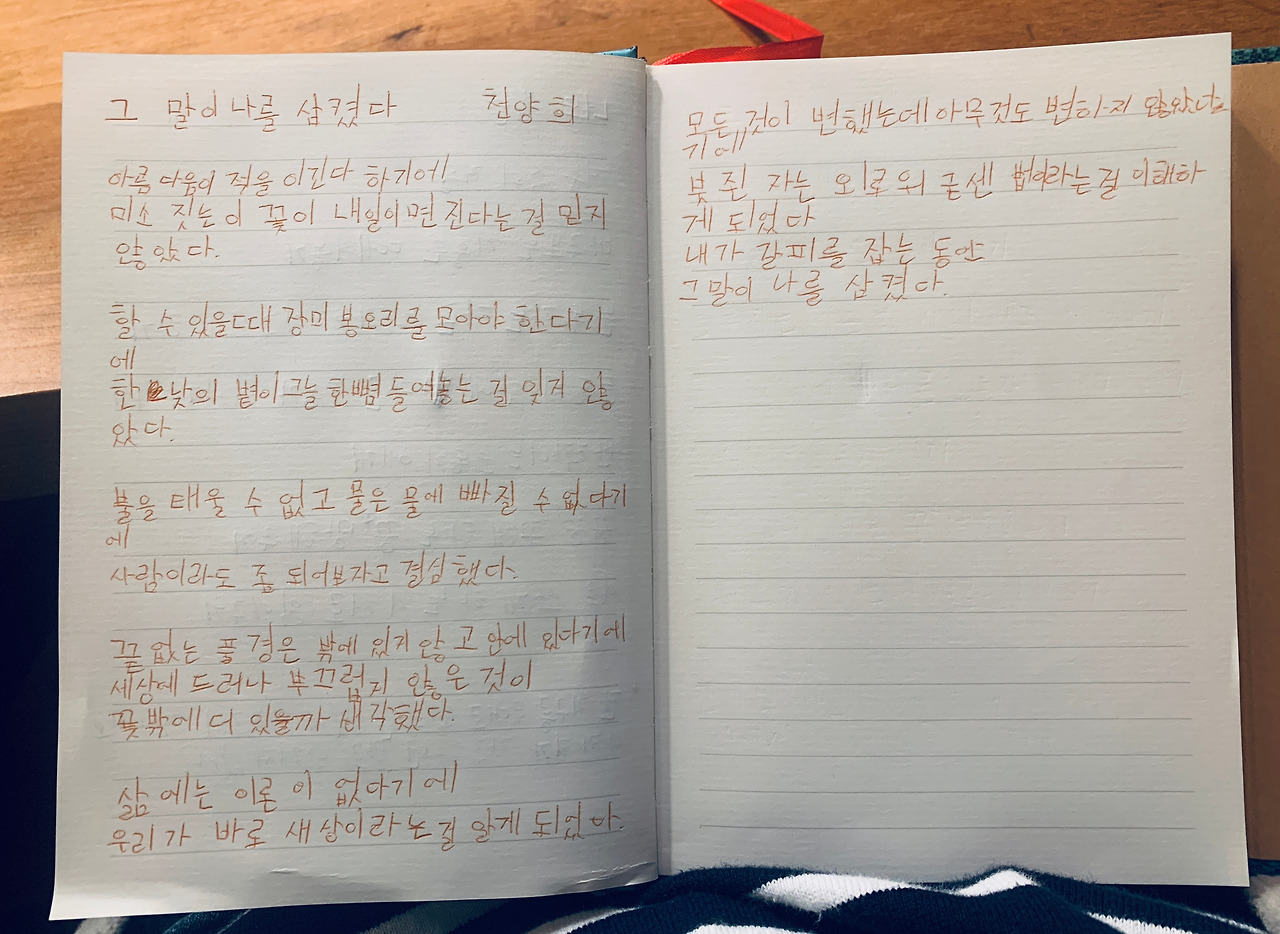 그 말이 나를 삼켰다 천양희
아름다움이 적을 이긴다 하기에
미소 짓는 이 꽃이 내일이면 진다는 걸 믿지
않았다.
할 수 있을때 장미 봉오리를 모아야 한다기
에
한 낮의 볕이 그늘 한뼘 들여놓는 걸 잊지 않
았다.
불을 태울 수 없고 물은 물에 빠질 수 없다기
에
사람이라도 좀 되어보자고 결심했다.
끝없는 풍경은 밖에 있지 않고 안에 있다기에
세상에 드러나 부끄럽지 않은 것이
꽃밖에 더 있을까 생각했다.
삶에는 이론이 없다기에
우리가 바로 세상이라는걸 알게 되었다.
모든 것이 변했는데 아무것도 변하지 않았다
기에
붓 쥔 자는 외로워 굳센 법이라는걸 이해하
게 되었다
내가 갈피를 잡는 동안
그 말이 나를 삼켰다.